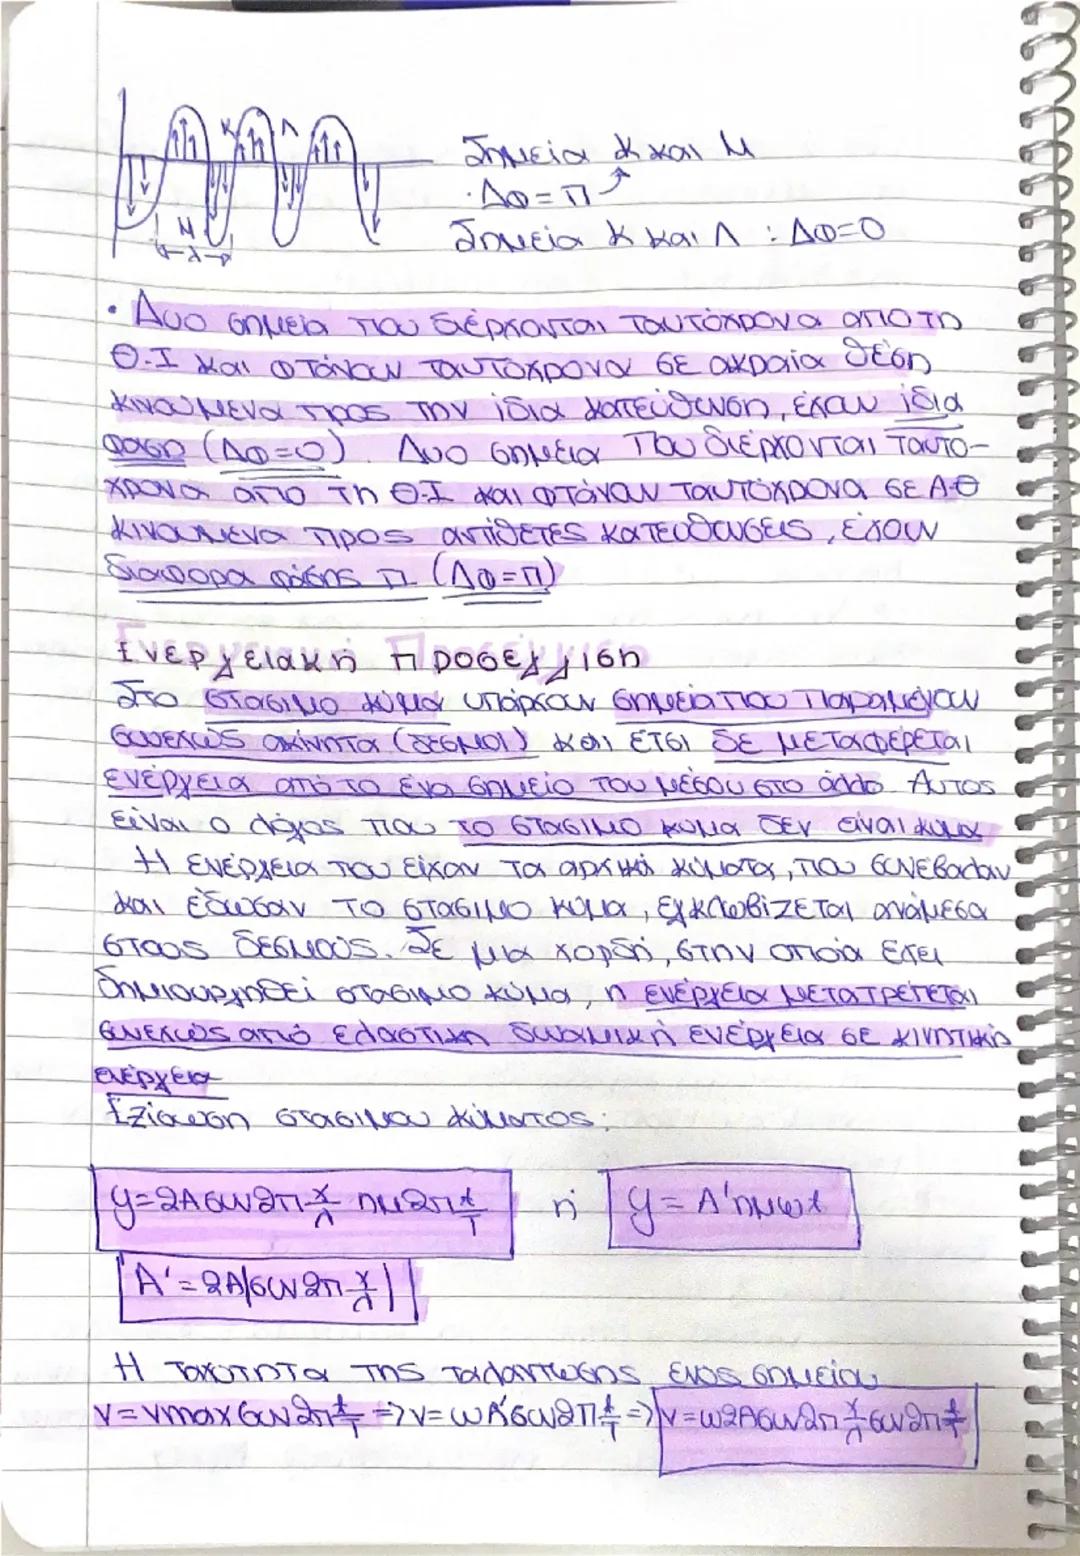 Κ Λ
Σημεία Κ και Μ
· Δφ = π
Μ
Σημεία Κ και Λ : Δφ=0
λ
• Δυο σημεία που διέρχονται ταυτόχρονα από τη
Θ.Ι και φτάνουν ταυτόχρονα σε ακραία θέση
κινούμενα προς την ίδια κατεύθυνση, έχουν ίδια
φαση (Δφ=0). Δυο σημεία που διέρχονται ταυτό-
χρονα από τη Θ.Ι και φτάνουν ταυτόχρονα σε Α.Θ
κινούμενα προς αντίθετες κατευθύνσεις, έχουν
διαφορα φάσης π (Δφ=π)
Ενεργειακή Προσέγγιση
Στο στάσιμο κύμα υπάρχουν σημεία που παραμένουν
συνεχώς ακίνητα (δεσμοί) και έτσι δε μεταφέρεται
ενέργεια από το ένα σημείο του μέσου στο άλλο. Αυτός
είναι ο λόγος που το στάσιμο κύμα δεν είναι κύμα
Η ενέργεια που είχαν τα αρχικά κύματα, που συνέβαλαν
και έδωσαν το στάσιμο κύμα, εγκλωβίζεται ανάμεσα
στους δεσμούς. Σε μια χορδή, στην οποία έχει
δημιουργηθεί στάσιμο κύμα, η ενέργεια μετατρέπεται
συνεχώς από ελαστική δυναμική ενέργεια σε κινητική
ενέργεια
Εξίσωση στάσιμου κύματος:
y=2Aσυν2π x/λ ημ2π t/T ή y = A'ημωt
A' = 2A|συν2π x/λ|
Η ταχύτητα της ταλάντωσης ενός σημείου
v = vmaxσυν2π t/T => v= ωA'συν2π t/T => v=ω2Aσυν2π x/λ συν2π t/T